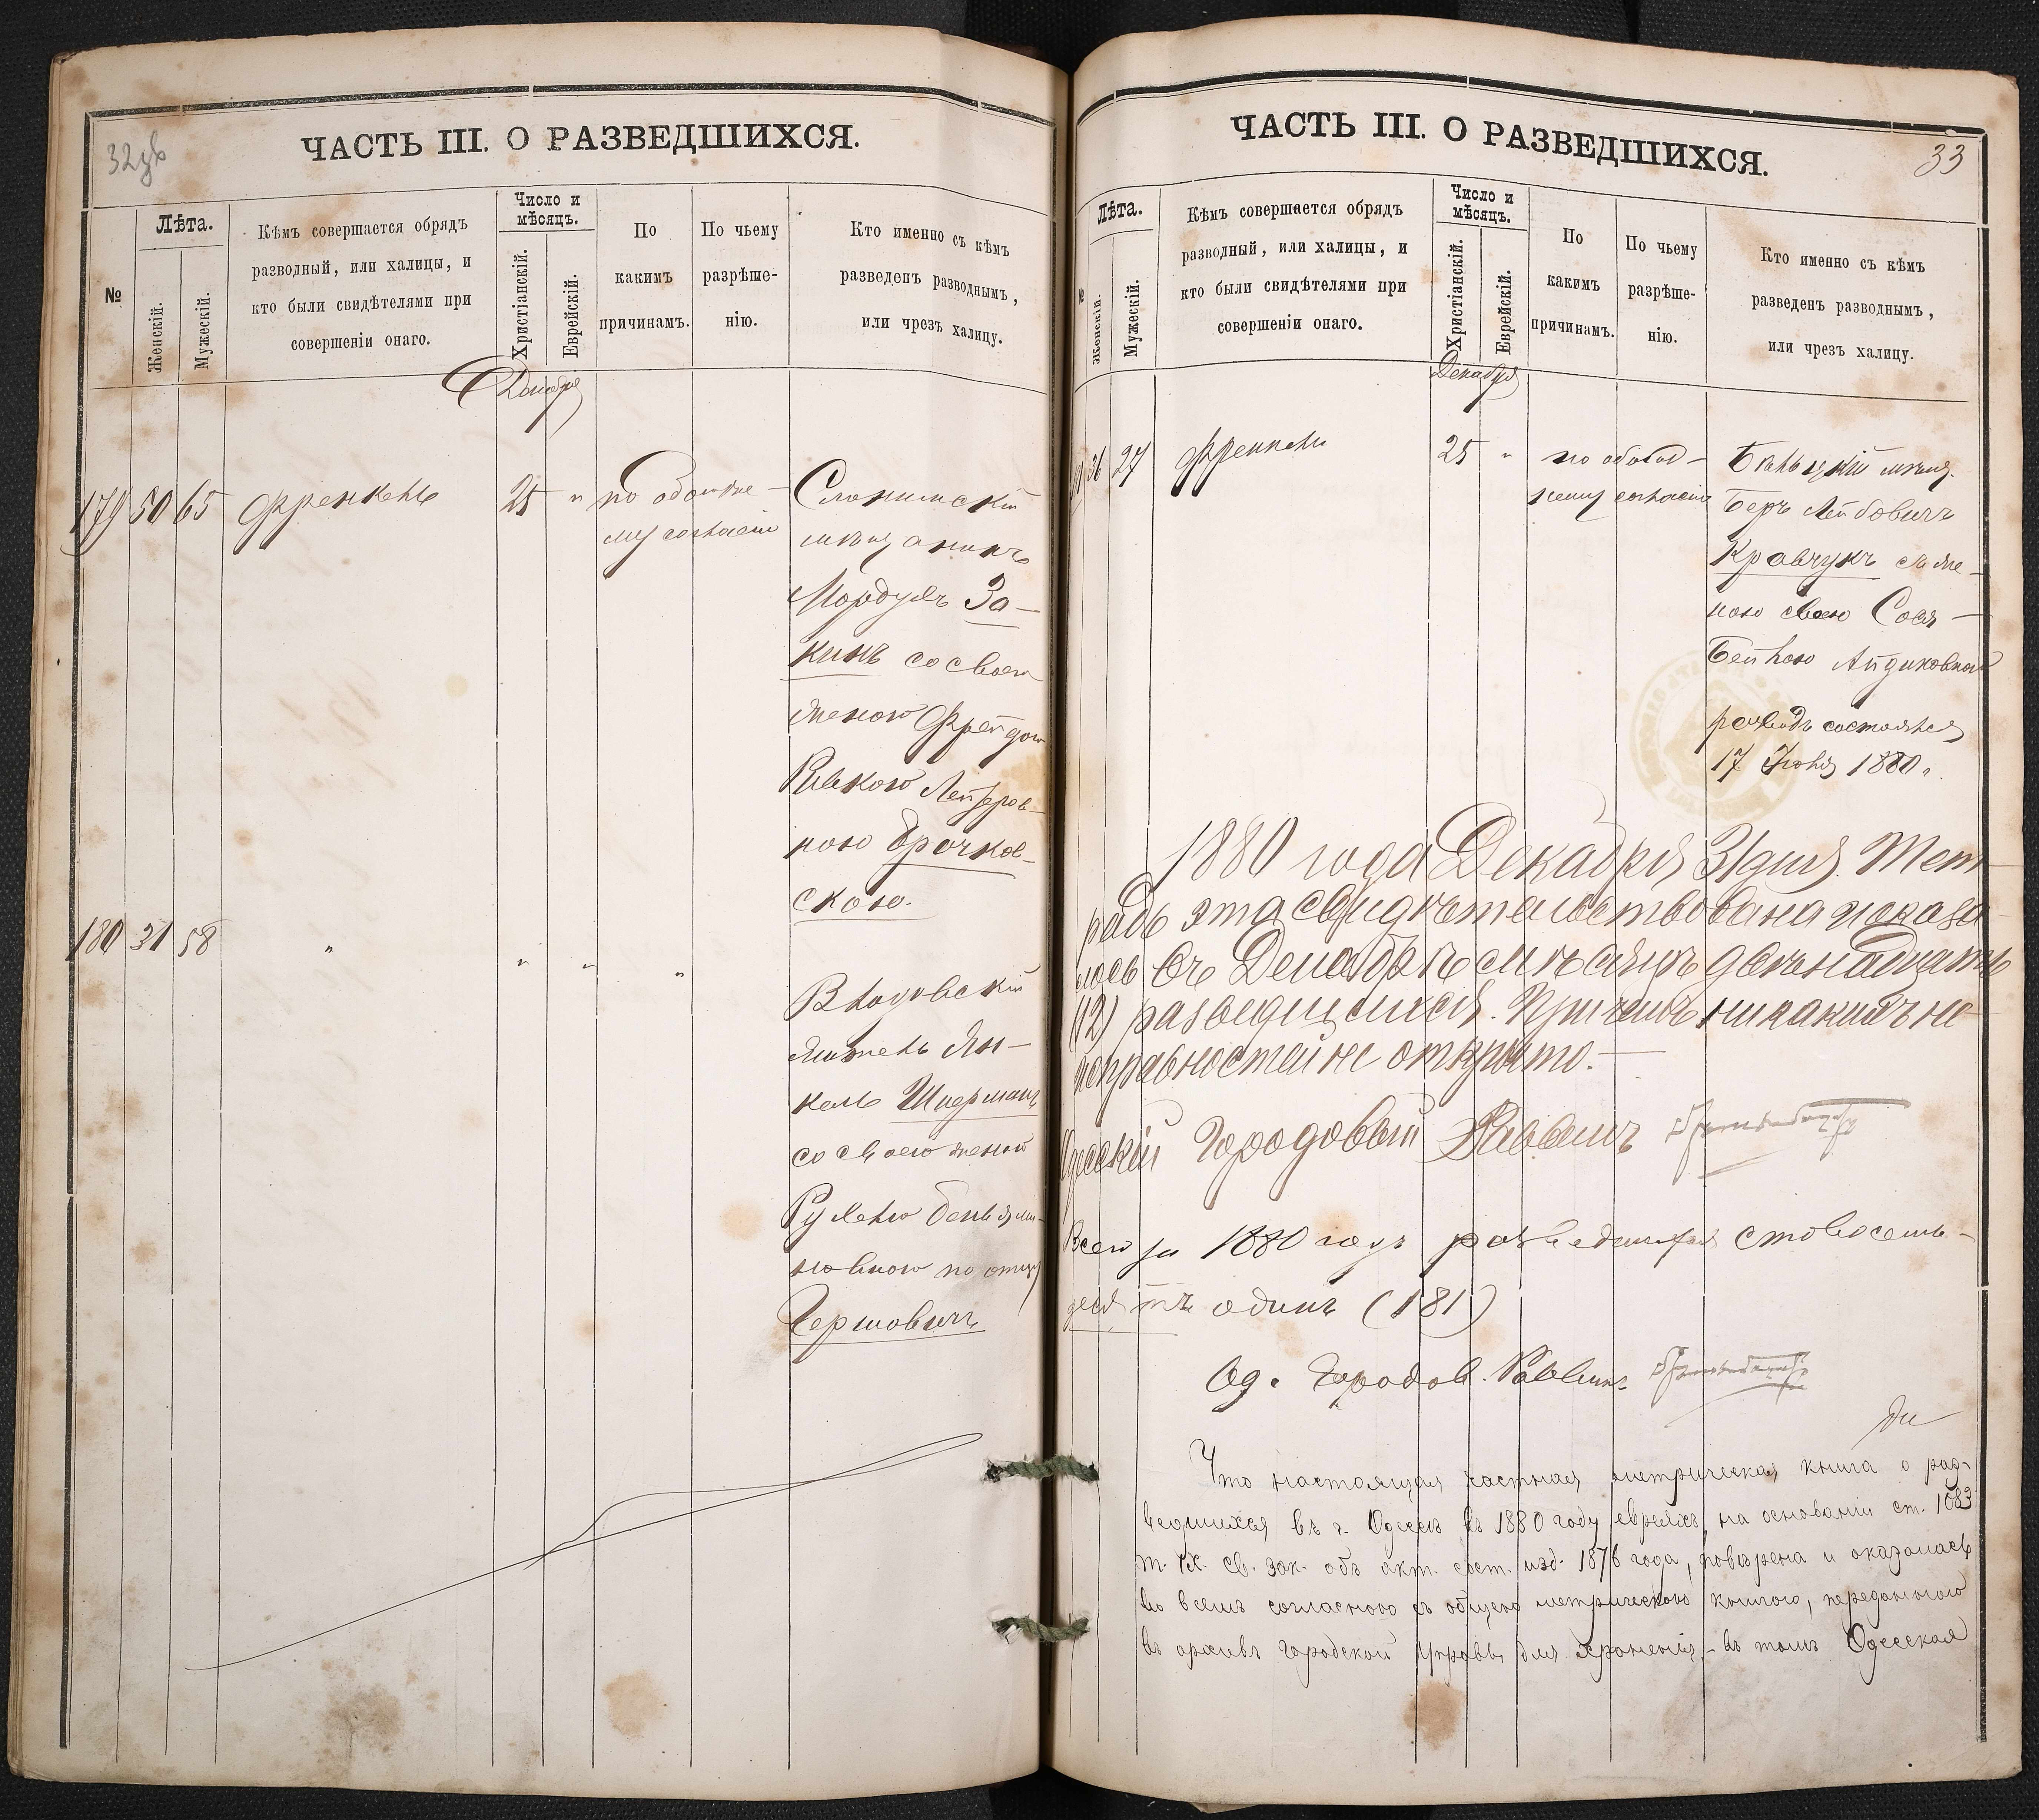 32об
ЧАСТЬ III. О РАЗВЕДШИХСЯ.
№
Лѣта.
Женскій.
Мужескій.
Кѣмъ совершается обрядъ
разводный, или халицы, и
кто были свидѣтелями при
совершеніи онаго.
Число и
мѣсяцъ.
Христіанскій.
Еврейскій.
По
какимъ
причинамъ.
По чьему
разрѣше-
нію.
Кто именно съ кѣмъ
разведенъ разводнымъ,
или чрезъ халицу.
Декабрь
179 50 65 Френкель 25 " по обоюдно-
му согласію
Слонимскій
мѣщанинъ
Мордухъ За-
кинъ со своею
женою Фрейдою
Ривкою Лейзеров-
ною Брочков-
скою.
180 31 58 " " " "
Влодовскій
житель Ян-
кель Шперманъ
со своею женою
Рухлею Беньями-
новною по отцу
Гершовичъ
33
ЧАСТЬ III. О РАЗВЕДШИХСЯ.
№
Лѣта.
Женскій.
Мужескій.
Кѣмъ совершается обрядъ
разводный, или халицы, и
кто были свидѣтелями при
совершеніи онаго.
Число и
мѣсяцъ.
Христіанскій.
Еврейскій.
По
какимъ
причинамъ.
По чьему
разрѣше-
нію.
Кто именно съ кѣмъ
разведенъ разводнымъ,
или чрезъ халицу.
Декабрь
36 27 Френкель 25 " по обоюд-
ному согласію
Бѣльцкій мѣщ.
Беръ Лейбовичъ
Кравчукъ съ же-
ною своею Сося-
Бейлою
разводъ состоялся
17 1880 г.
1880 года Декабря 31 дня. Тет-
радь эта свидѣтельствована показа-
лось въ Декабрѣ мѣсяцѣ двѣнадцать
(12) разведшихся. Причемъ никакихъ не-
исправностей не открыто.—
Одесскій Городовый Раввинъ
Всего за 1880 годъ разведшихся сто восемь-
десятъ одинъ (181)
Од. Городов. Раввинъ
Что настоящая частная метрическая книга о раз-
ведшихся въ г. Одессѣ въ 1880 году евреяхъ, на основаніи ст. 1083
т. IX св. зак. объ акт. сост. изд. 1876 года, повѣрена и оказалась
во всемъ согласною съ общею метрическою книгою, переданною
въ архивъ Городской Управы для храненія,- въ томъ Одесская